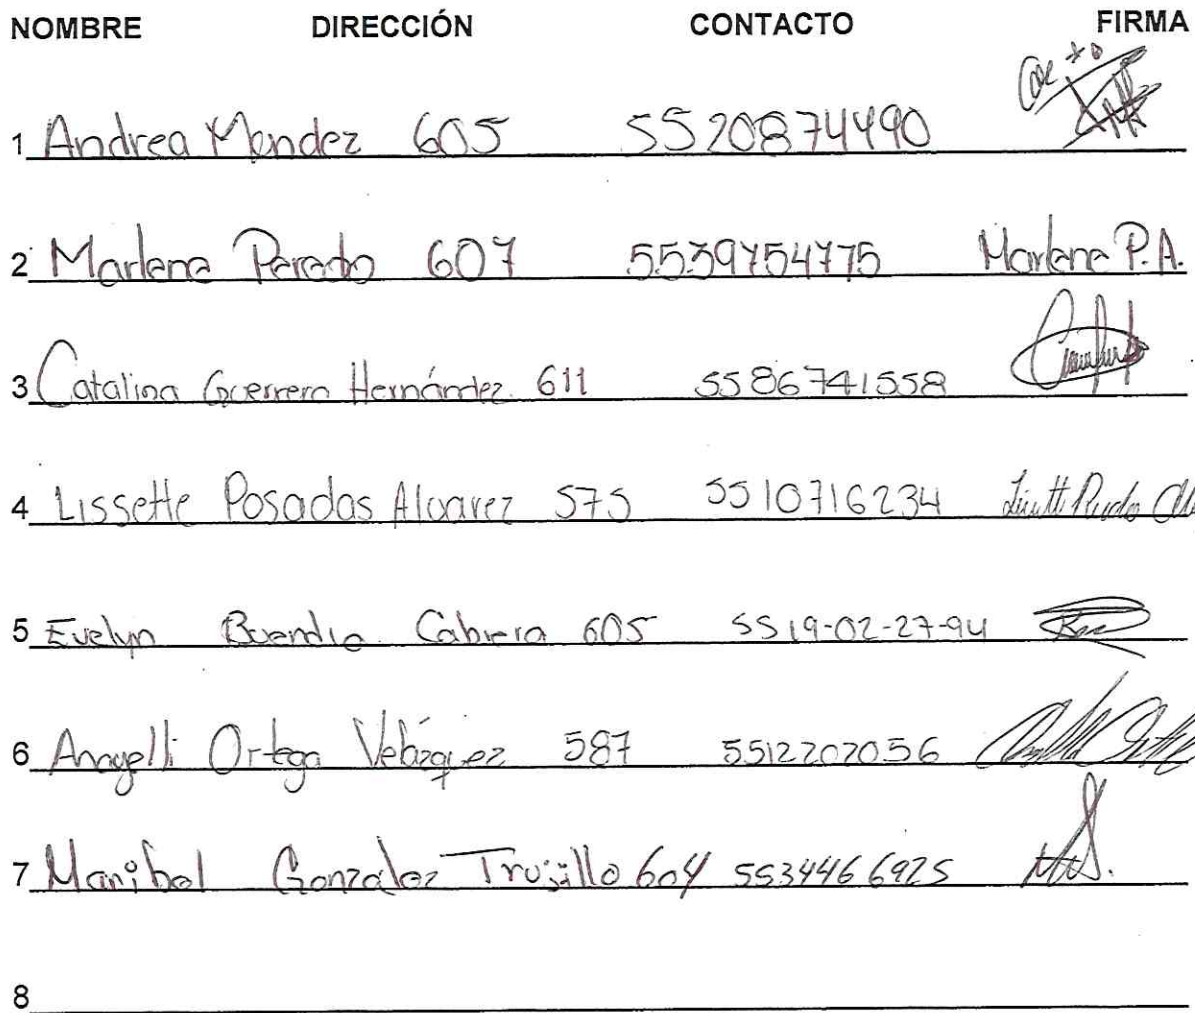 NOMBRE DIRECCIÓN CONTACTO FIRMA
1 Andrea Mendez 605 5520874490
2 Marlene Peredo 607 5539754775 Marlene P.A.
3 Catalina Guerrero Hernández 611 5586741558
4 Lissette Posadas Alvarez 575 5510716234
5 Evelyn Buendia Cabrera 605 5519-02-27-94
6 Anayelli Ortega Velázquez 587 5512207056
7 Maribel Gonzalez Trujillo 604 5534466925
8